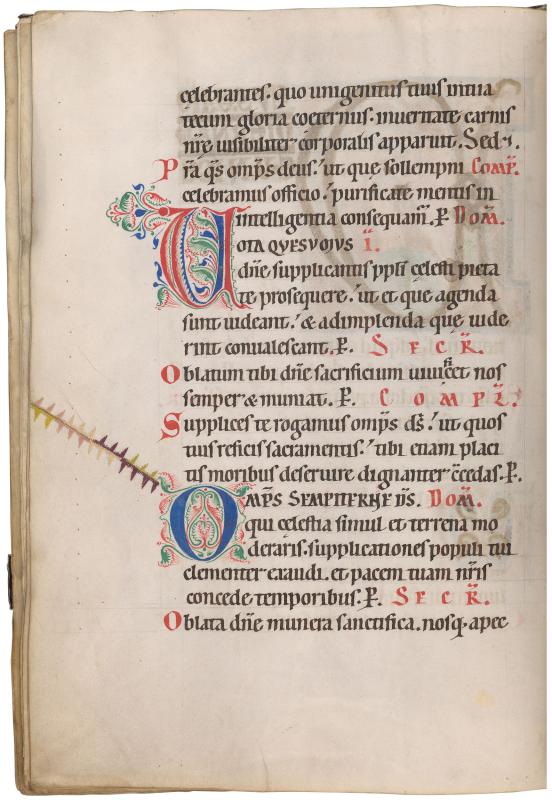 celebrantes. quo unigenitus tuus intua
tecum gloria coeternus. inueritate carnis
nr̄e uisibiliter corporalis apparuit. Sed.
Pr̄a q̄s omp̄s deus. ut que sollempni COMP̄.
celebramus officio. purificate mentis in
intelligentia consequam̄. P. DOM̄.
VOTA QVESVMVS I.
dn̄e supplicantis pp̄li celesti pieta
te prosequere. ut et que agenda
sunt uideant. & adimplenda que uide
rint conualescant. P. SECR̄.
Oblatum tibi dn̄e sacrificium uiuificet nos
semper & muniat. P. COMPL̄.
Supplices te rogamus omp̄s ds̄. ut quos
tuis reficis sacramentis. tibi etiam placi
tis moribus deseruire dignanter c̄cedas. P.
OMP̄S SEMPITERNE DS̄. DOM̄.
qui celestia simul et terrena mo
deraris. supplicationes populi tui
clementer exaudi. et pacem tuam nr̄is
concede temporibus. P. SECR̄.
Oblata dn̄e munera sanctifica. nosq. apec